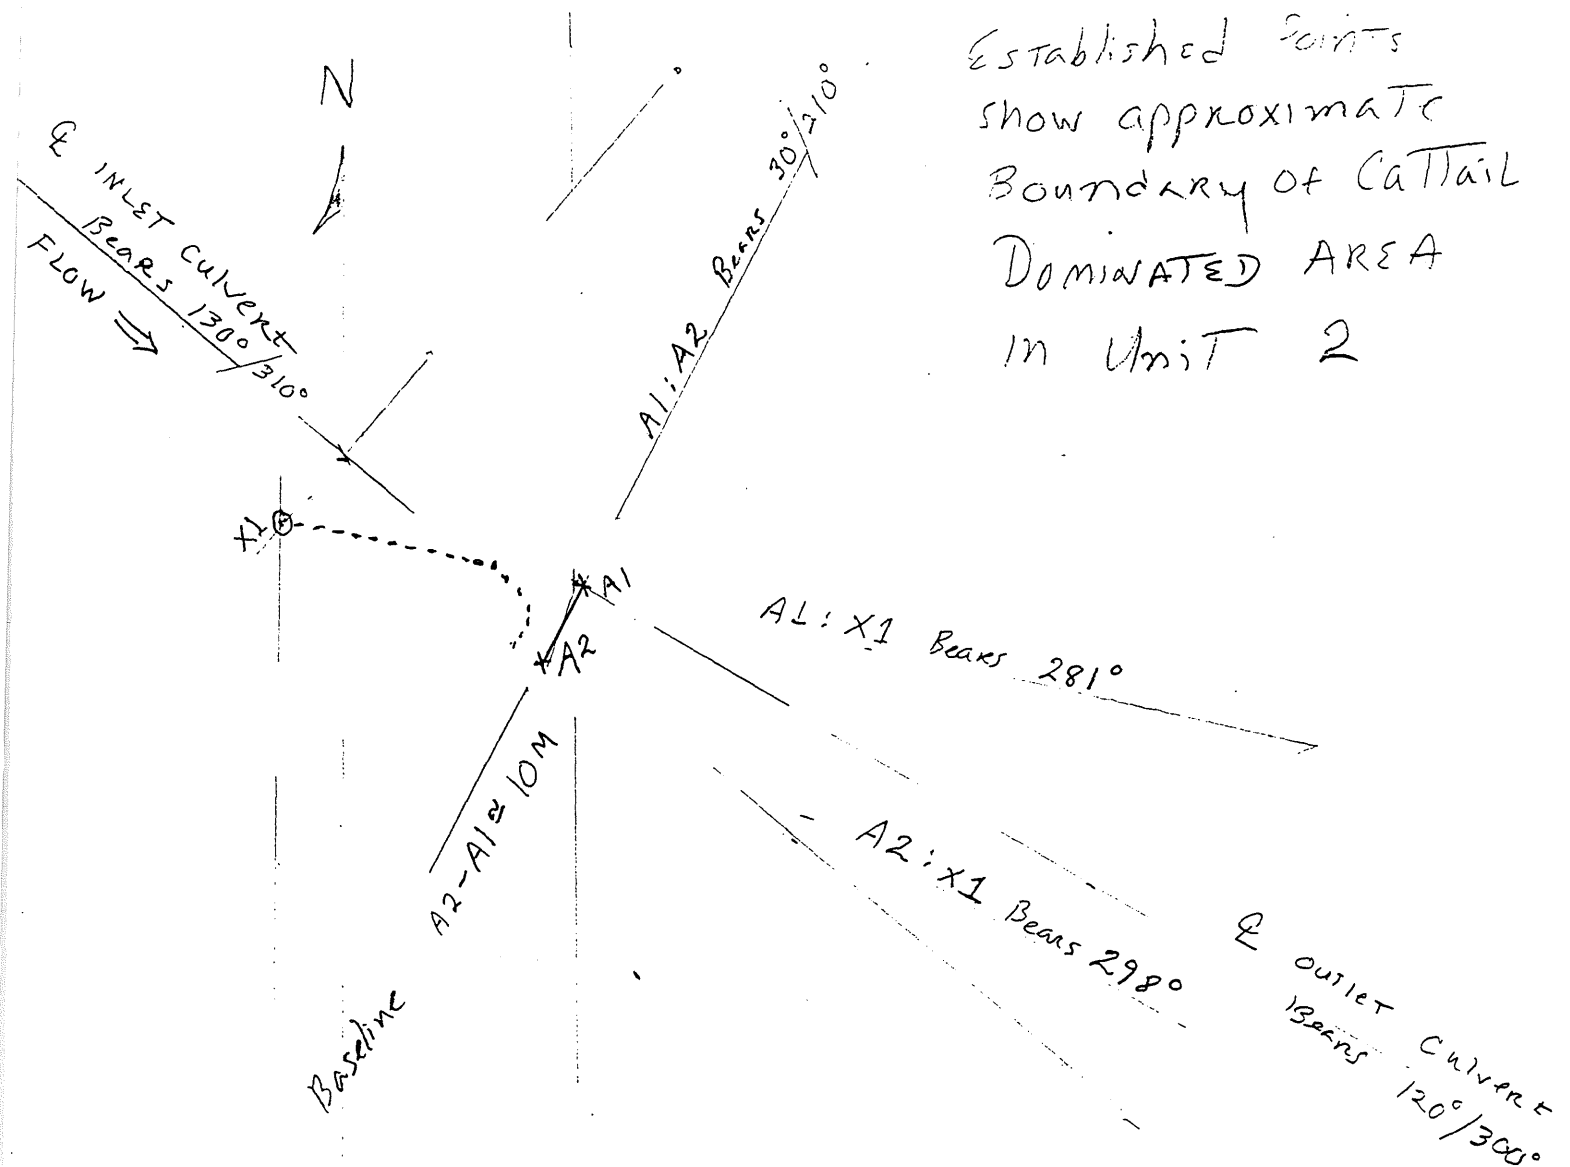 Established Points
show approximate
Boundary of Cattail
Dominated AREA
in Unit 2
N
℄ INLET Culvert
Bears 130°/310°
FLOW ⇒
A1: A2 Bears 30°/210°
X1
A1
A2
A1: X1 Bears 281°
A2-A1 ≅ 10M
A2: X1 Bears 298°
℄ outlet Culvert
Bears 120°/300°
Baseline